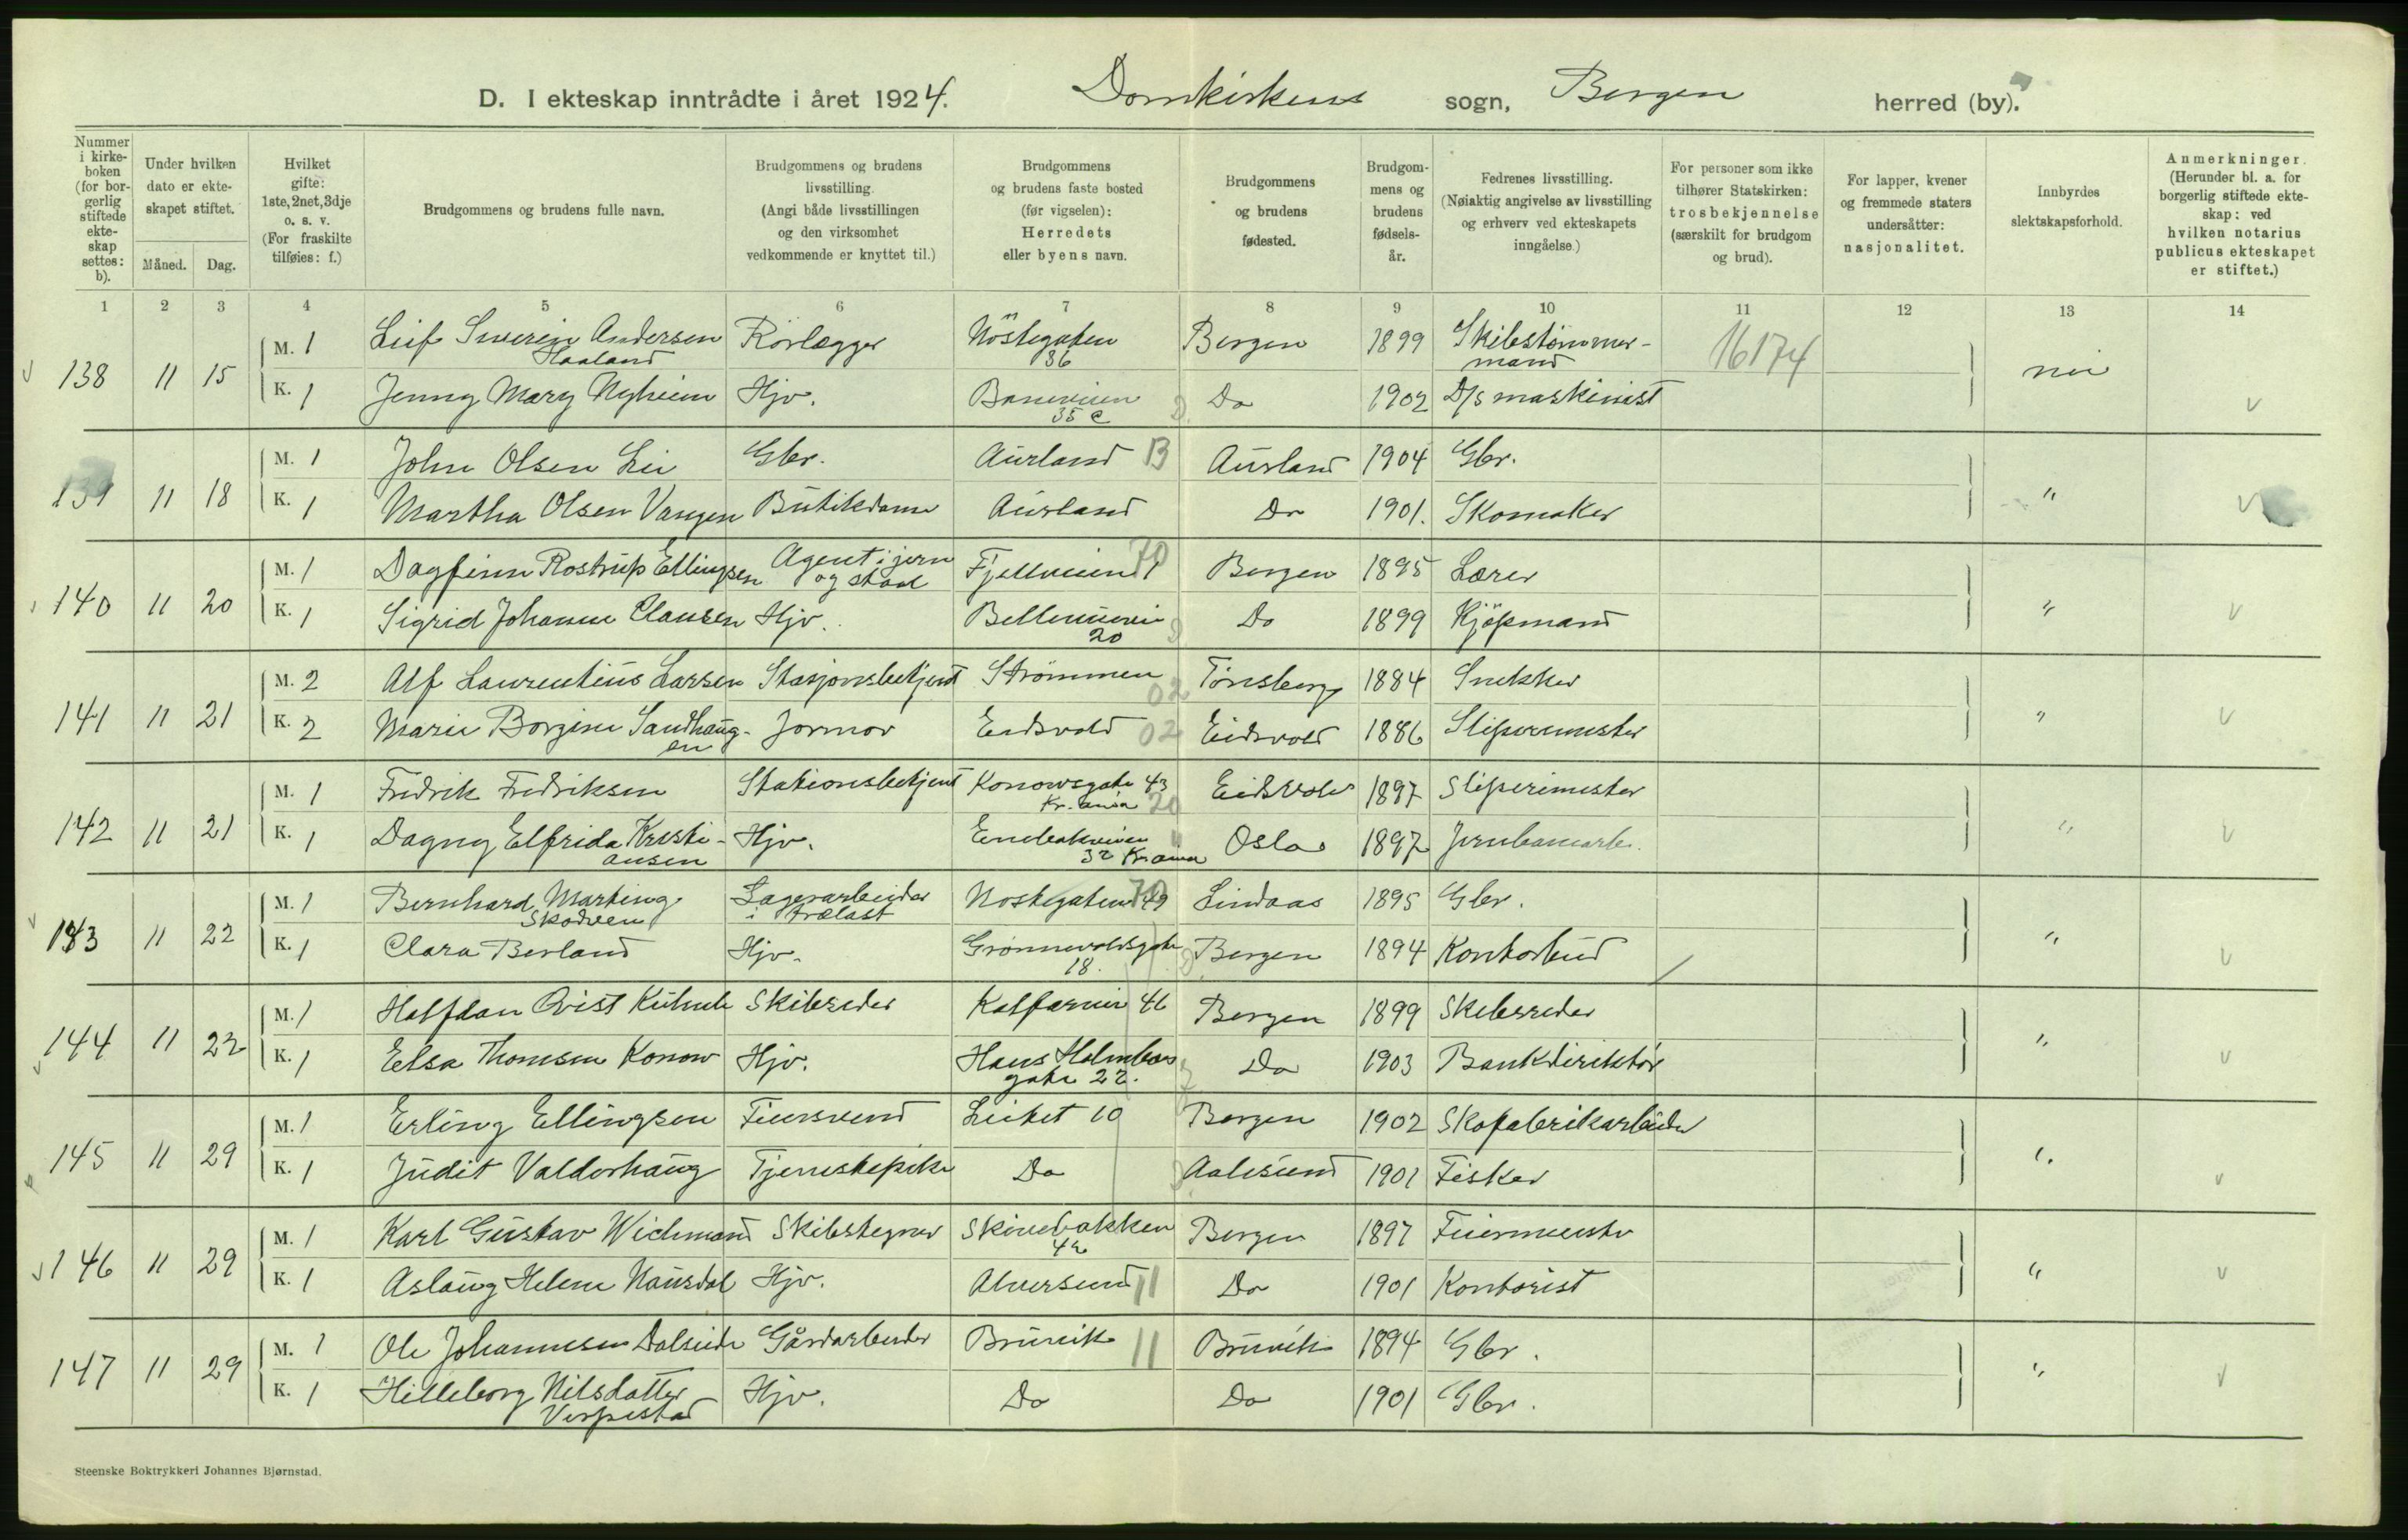 D. I ekteskap inntrådte i året 1924. Domkirkens sogn, Bergen herred (by).
Nummer i kirkeboken (for borgerlig stiftede ekteskap settes: b).
Under hvilken dato er ekteskapet stiftet.
Måned. Dag.
Hvilket gifte: 1ste, 2net, 3dje o. s. v. (For fraskilte tilføies: f.)
Brudgommens og brudens fulle navn.
Brudgommens og brudens livsstilling. (Angi både livsstillingen og den virksomhet vedkommende er knyttet til.)
Brudgommens og brudens faste bosted (før vigselen): Herredets eller byens navn.
Brudgommens og brudens fødested.
Brudgommens og brudens fødselsår.
Fedrenes livsstilling. (Nøiaktig angivelse av livsstilling og erhverv ved ekteskapets inngåelse.)
For personer som ikke tilhører Statskirken: trosbekjennelse (særskilt for brudgom og brud).
For lapper, kvener og fremmede staters undersåtter: nasjonalitet.
Innbyrdes slektskapsforhold.
Anmerkninger. (Herunder bl. a. for borgerlig stiftede ekteskap: ved hvilken notarius publicus ekteskapet er stiftet.)
1 2 3 4 5 6 7 8 9 10 11 12 13 14
138 11 15 M. 1 Leif Severin Andersen Haaland Rørlægger Nöstegaten 36 Bergen 1899 Skibstømmermand 16174 nei
K. 1 Jenny Mary Nyheim Hjv. Baneveien 35 c Do 1902 D/s maskinist
139 11 18 M. 1 John Olsen Lie Gbr. Aurland B Aurland 1904 Gbr. "
K. 1 Martha Olsen Vangen Butikdame Aurland Do 1901. Skomaker
140 11 20 M. 1 Dagfinn Rostrup Ellingsen Agent i jern og staal Fjellveien 70 Bergen 1895 Lærer "
K. 1 Sigrid Johanne Clausen Hjv. Bellevuevei 20 Do 1899 Kjøpmand
141 11 21 M. 2 Alf Laurentius Larsen Stasjonsbetjent Strømmen 02 Tønsberg 1884 Snekker "
K. 2 Marie Borgine Sandhaugen Jormor Eidsvold 02 Eidsvold 1886 Sliperimester
142 11 21 M. 1 Fredrik Fredriksen Stationsbetjent Konowsgate 43 Kr.ania 20 Eidsvold 1897 Sliperimester "
K. 1 Dagny Elfrida Kristiansen Hjv. 32 Kr.ania Oslo 1897 Jernbanearb.
143 11 22 M. 1 Bernhard Martinus Skodven Lagerarbeider i trælast Nøstegaten 49 70 Lindaas 1895 Gbr. "
K. 1 Clara Berland Hjv. Grønnevoldsgate 18. Bergen 1894 Kontorbud
144 11 22 M. 1 Halfdan Qvist Kuhnle Skibsreder Kalfarvei 46 Bergen 1899 Skibsreder "
K. 1 Elsa Thomsen Konow Hjv. Hans Holmboes gate 22. Do 1903 Bankdirektør
145 11 29 M. 1 Erling Ellingsen Feiersvend Leitet 10 Bergen 1902 Skofabrikarbeider "
K. 1 Judit Valderhaug Tjenestepike Do Aalesund 1901 Fisker
146 11 29 M. 1 Karl Gustav Wichmand Skibstegner Skivebakken 42 Bergen 1897 Feiermester "
K. 1 Aslaug Helene Hausdal Hjv. Alversund 11 Do 1901 Kontorist
147 11 29 M. 1 Ole Johannesen Dalseide Gårdarbeider Bruvik 11 Bruvik 1894 Gbr. "
K. 1 Hilleborg Nilsdatter Vespestad Hjv. Do Do 1901 Gbr.
Steenske Boktrykkeri Johannes Bjørnstad.